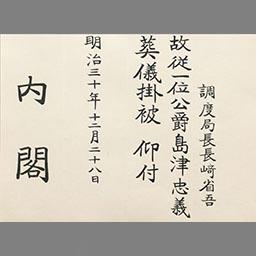 調度局長長崎省吾
故従一位公爵島津忠義
葬儀掛被 仰付
明治三十年十二月二十八日
内閣